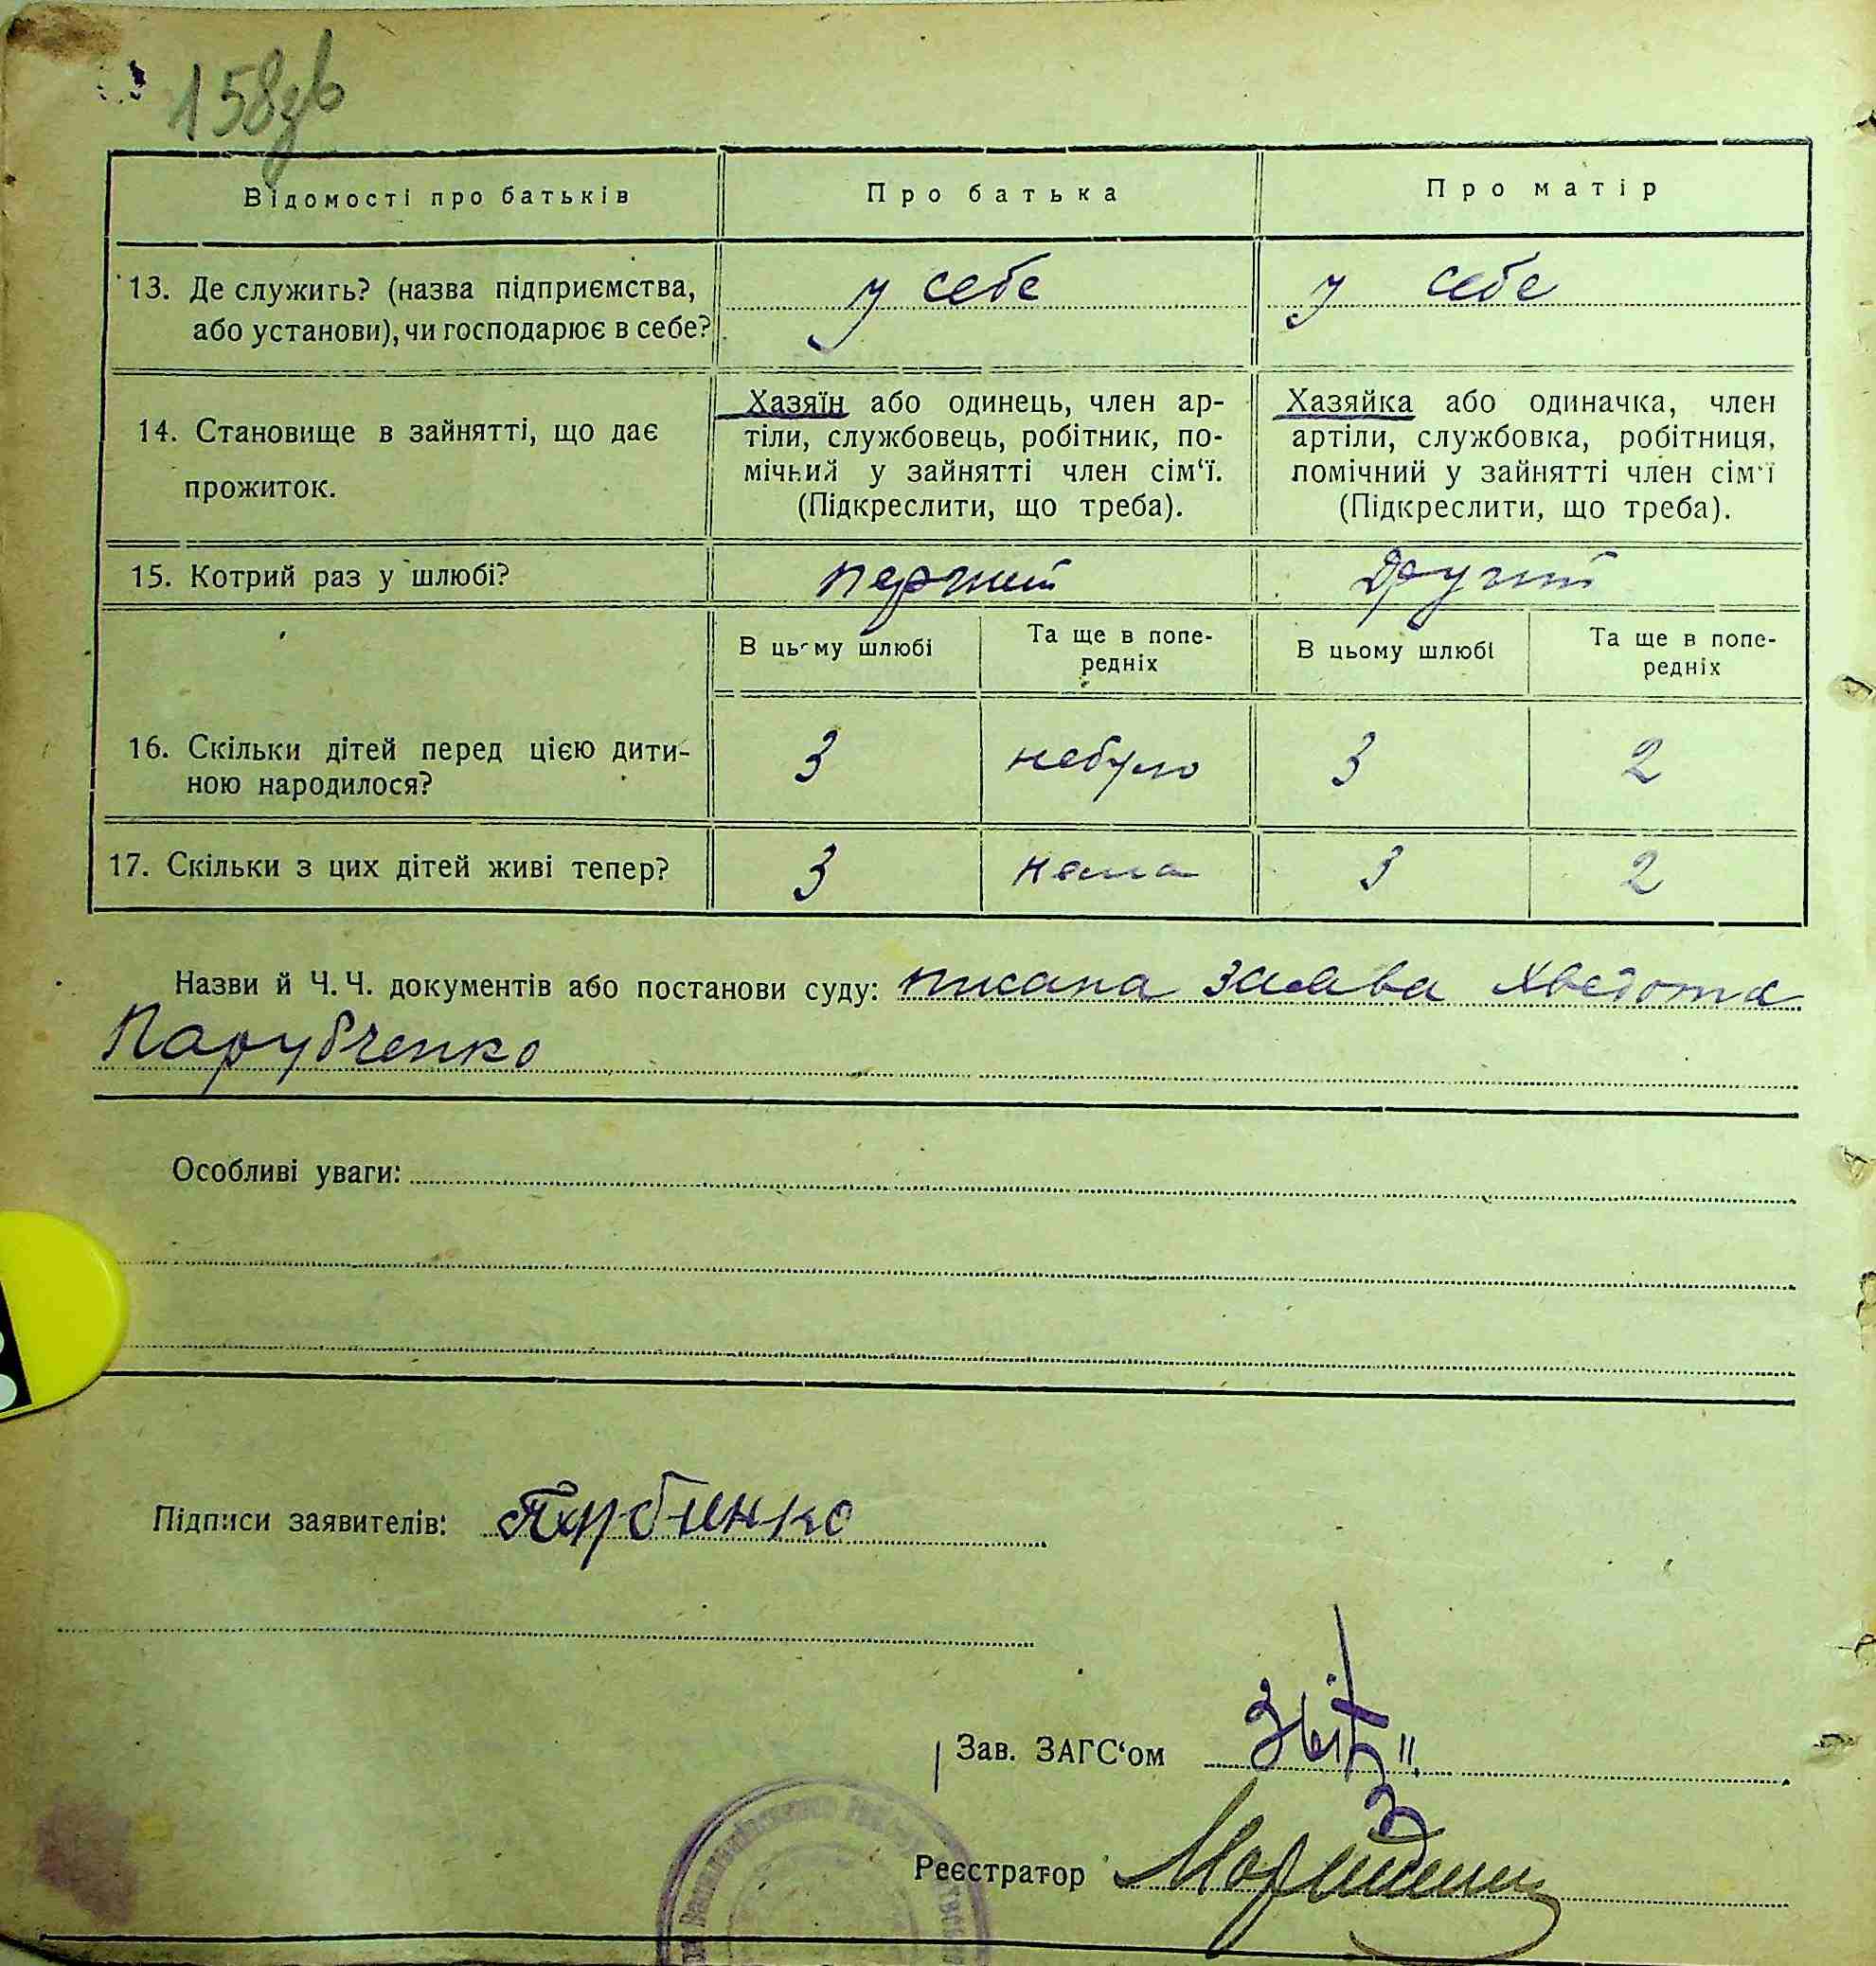 158зв
Відомості про батьків
Про батька
Про матір
13. Де служить? (назва підприємства,
або установи), чи господарює в себе?
у себе
у себе
14. Становище в зайнятті, що дає
прожиток.
Хазяїн або одинець, член ар-
тіли, службовець, робітник, по-
мічний у зайнятті член сім‘ї.
(Підкреслити, що треба).
Хазяйка або одиначка, член
артіли, службовка, робітниця,
помічний у зайнятті член сім‘ї
(Підкреслити, що треба).
15. Котрий раз у шлюбі?
перший
другий
В цьому шлюбі
Та ще в попе-
редніх
В цьому шлюбі
Та ще в попе-
редніх
16. Скільки дітей перед цією дити-
ною народилося?
3
небуло
3
2
17. Скільки з цих дітей живі тепер?
3
нема
3
2
Назви й Ч. Ч. документів або постанови суду: писана заява Хведота
Парубченко
Особливі уваги:
Підписи заявителів:
Зав. ЗАГС‘ом
Реєстратор